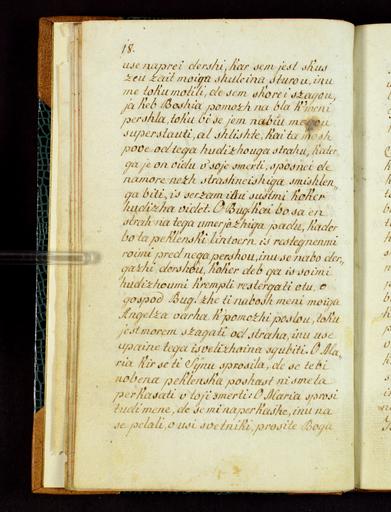 18.
use naprei dershi, kar sem jest skus
zeu zait moiga shuleina sturou, inu
me toku motili, de sem skorei szagou,
ja keb Boshia pomozh na bla k'meni
pershla, toku bi se jem nabiu mogou
superstauti, al shlishte, kai ta mosh
pove od tega hudizhouga strahu, kader
ga je on vidu v'soje smerti, sposnei de
namore nezh strashneishiga smishlen,
ga biti, is serzam inu susimi koker
hudizha videt. O Bug kai bo sa en
strah na tega umerjozhiga padu, kader
bo ta peklenski lintvern, is rastegnenmi
roimi pred nega pershou, inu se nabo der,
gazhi dershou, koker deb ga is soimi
hudizhoumi krempli restergati otu, o
gospod Bug! zhe ti nabosh meni moiga
Angelza varha k'pomozhi poslou, toku
jest morem szagati od straha, inu use
upaine tega isvelizhaina sgubiti. O Ma,
ria kir se ti Synu sprosila, de se tebi
nobena peklenska poshast ni smela
perkasati v'toji smerti: O Maria sprosi
tudi mene, de se mi naperkashe, inu na
se pelati, o usi svetniki, prosite Boga